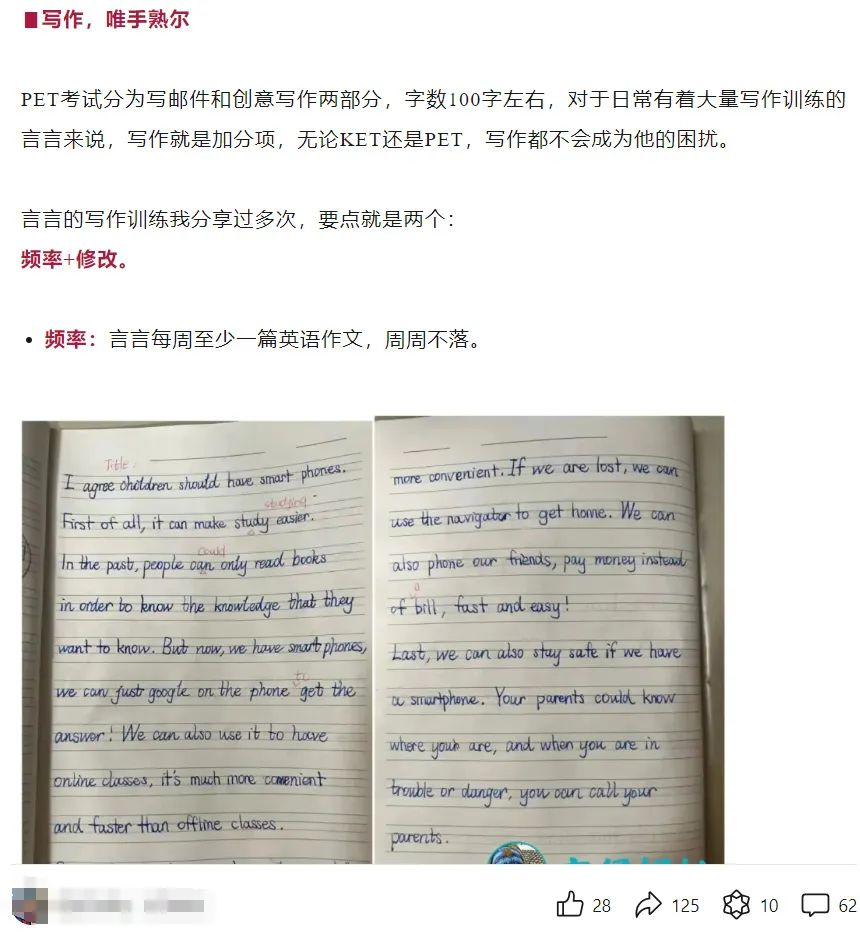 写作，唯手熟尔
PET考试分为写邮件和创意写作两部分，字数100字左右，对于日常有着大量写作训练的
言言来说，写作就是加分项，无论KET还是PET，写作都不会成为他的困扰。
言言的写作训练我分享过多次，要点就是两个：
频率+修改。
• 频率：言言每周至少一篇英语作文，周周不落。
Title.
I agree children should have smart phones.
studying
First of all, it can make study easier.
could
In the past, people can only read books
in order to know the knowledge that they
want to know. But now, we have smart phones,
to
we can just google on the phone get the
answer! We can also use it to have
online classes, it's much more convenient
and faster than offline classes.
more convenient. If we are lost, we can
use the navigator to get home. We can
also phone our friends, pay money instead
a
of bill, fast and easy!
Last, we can also stay safe if we have
a smartphone. Your parents could know
where your are, and when you are in
trouble or danger, you can call your
parents.
28 125 10 62